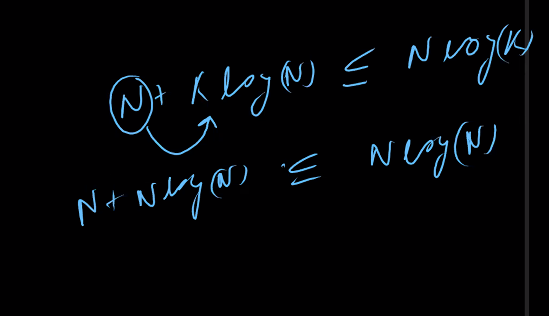 N + K log(N) ≤ N log(K)
N + N log(N) ≤ N log(N)